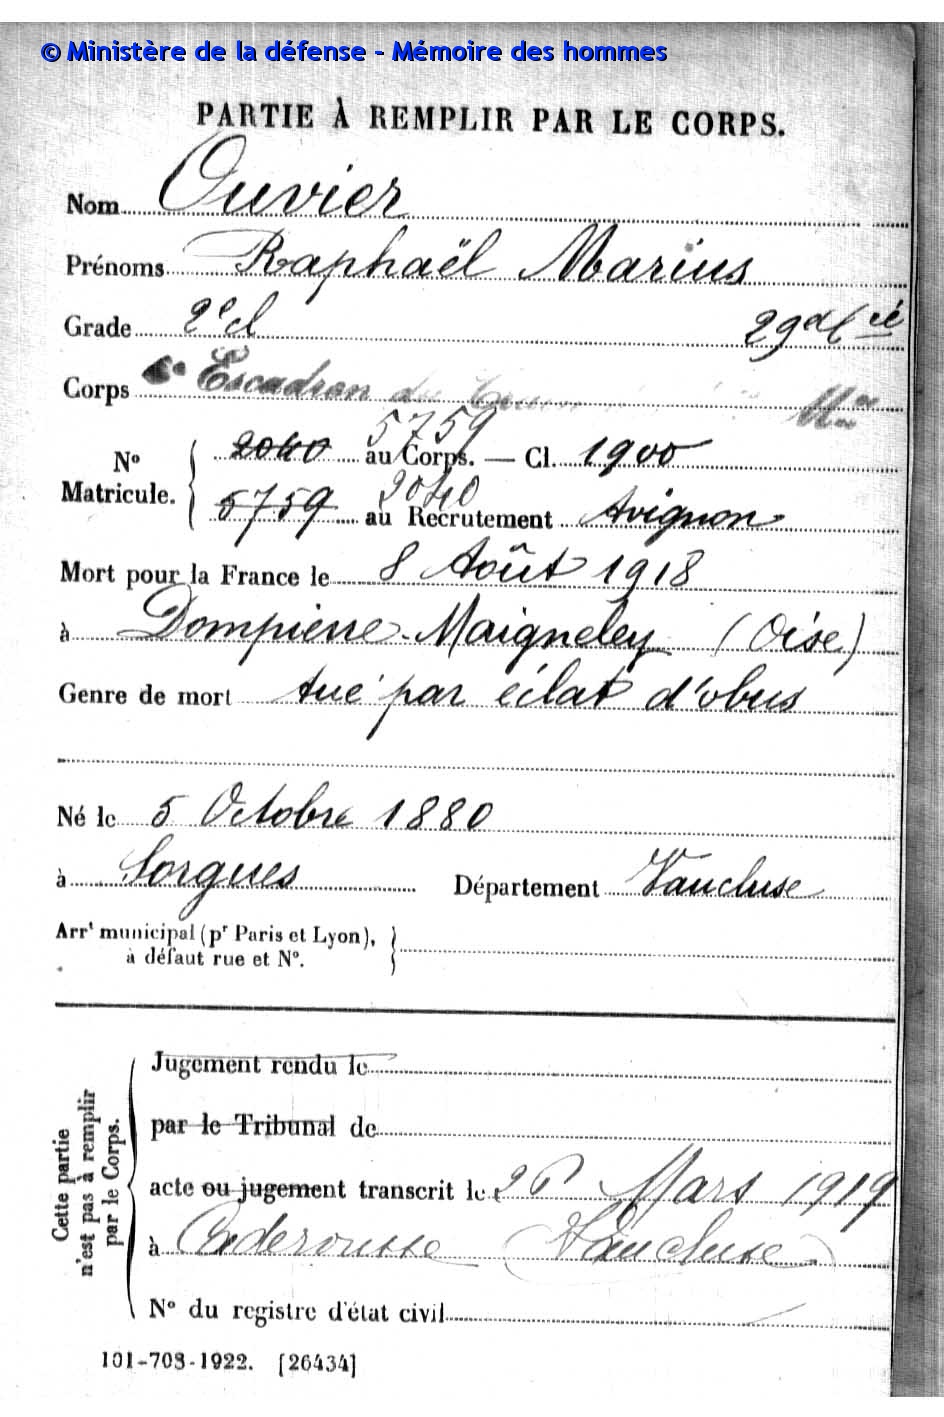 © Ministère de la défense - Mémoire des hommes
PARTIE À REMPLIR PAR LE CORPS.
Nom Ouvier
Prénoms Raphaël Marius
Grade 2e cl
Corps Escadron du
5759
No Matricule. 2040 au Corps. — Cl. 1900
2040
5759 au Recrutement Avignon
Mort pour la France le 8 Août 1918
à Dompierre-Maigneley (Oise)
Genre de mort tué par éclat d'obus
Né le 5 Octobre 1880
à Sorgues Département Vaucluse
Arrt municipal (pr Paris et Lyon),
à défaut rue et No.
Cette partie n'est pas à remplir par le Corps.
Jugement rendu le
par le Tribunal de
acte ou jugement transcrit le 26 Mars 1919
à Caderousse (Vaucluse)
No du registre d'état civil
101-708-1922. [26434]